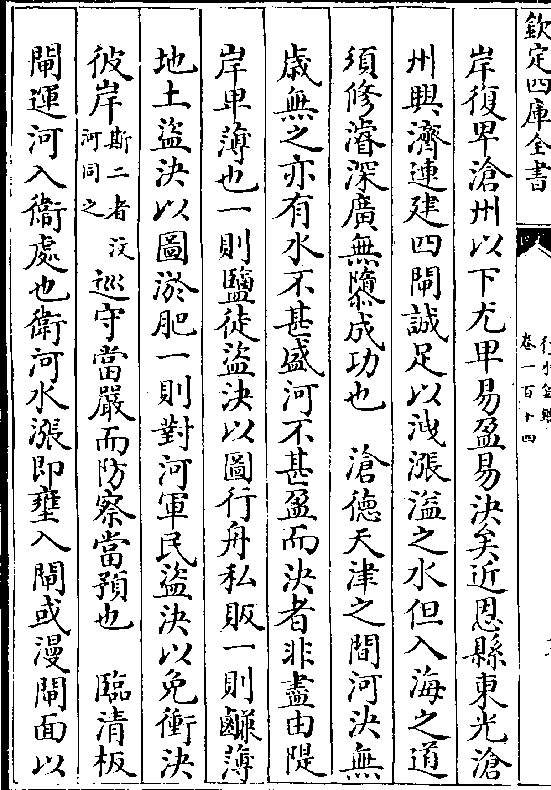 欽定四庫全書
行水金鑑
卷一百十四
岸復卑滄州以下尤卑易盈易決矣近恩縣東光滄
州興濟連建四閘誠足以洩漲溢之水但入海之道
須修濬深廣無隳成功也　滄德天津之間河決無
歳無之亦有水不甚盛河不甚盈而決者非盡由隄
岸卑薄也一則鹽徒盜決以圖行舟私販一則鹻薄
地土盜決以圖淤肥一則對河軍民盜決以免衝決
彼岸斯二者汶河同之巡守當嚴而防察當預也　臨清板
閘運河入衛處也衛河水漲即壅入閘或漫閘面以